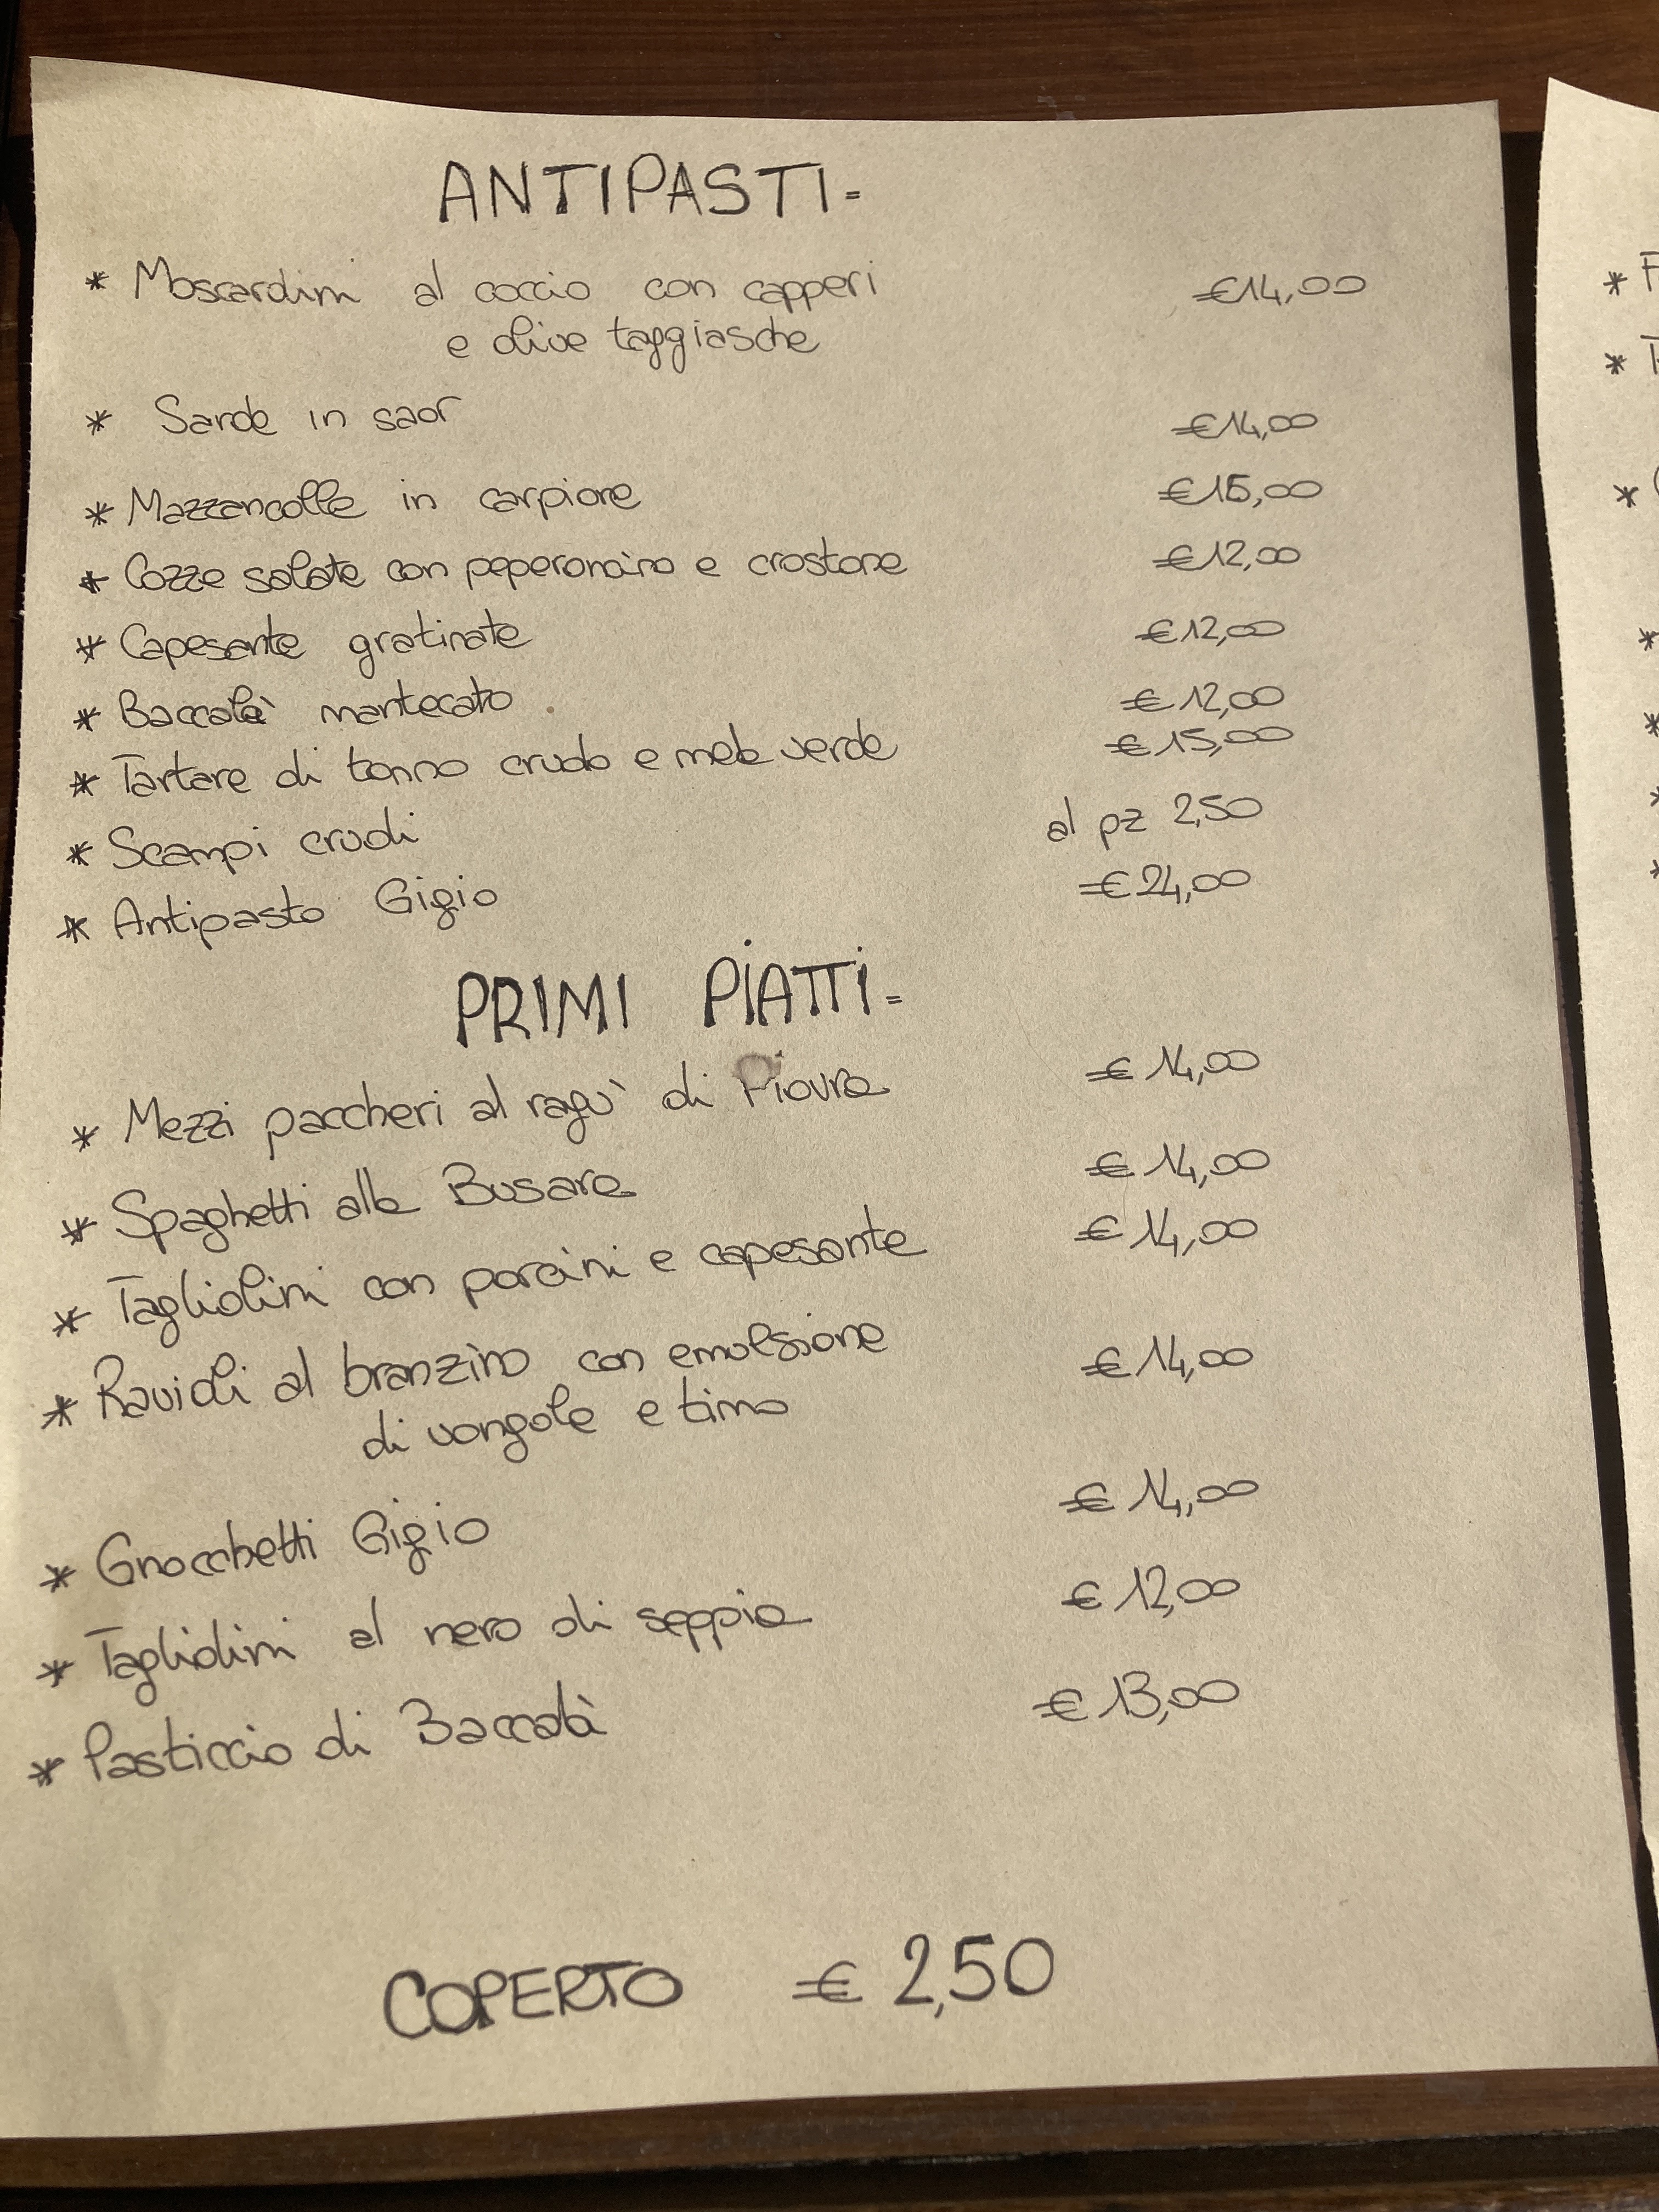 ANTIPASTI=
* Moscardini al coccio con capperi €14,00
e olive taggiasche
* Sarde in saor €14,00
* Mazzancolle in carpione €15,00
* Cozze salate con peperoncino e crostone €12,00
* Capesante gratinate €12,00
* Baccalà mantecato €12,00
* Tartare di tonno crudo e mela verde €15,00
* Scampi crudi al pz 2,50
* Antipasto Gigio €24,00
PRIMI PIATTI=
* Mezzi paccheri al ragù di Piovra €14,00
* Spaghetti alla Busara €14,00
* Tagliolini con porcini e capesante €14,00
* Ravioli al branzino con emulsione €14,00
di vongole e timo
* Gnocchetti Gigio €14,00
* Tagliolini al nero di seppia €12,00
* Pasticcio di Baccalà €13,00
COPERTO € 2,50